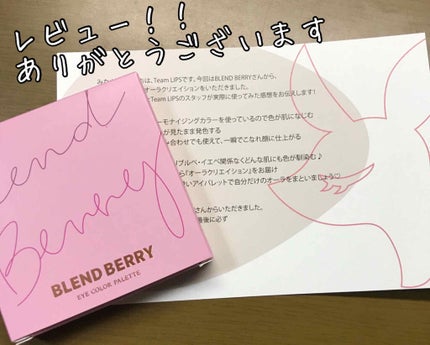 レビュー!!
ありがとうございます
は、Team LIPSです。今回はBLEND BERRYさんから、
オーラクリエイションをいただきました。
Team LIPSのスタッフが実際に使ってみた感想をお伝えします!
ーモナイジングカラーを使っているので色が肌になじむ
が見たまま発色する
み合わせでも使えて、一瞬でこなれ顔に仕上がる
ブルベ・イエベ関係なくどんな肌にも色が馴染む♪
から「オーラクリエイション」をお届け
いアイパレットで自分だけのオーラをまといましょう♡
さんからいただきました。
最後に必ず
Blend
Berry
BLEND BERRY
EYE COLOR PALETTE